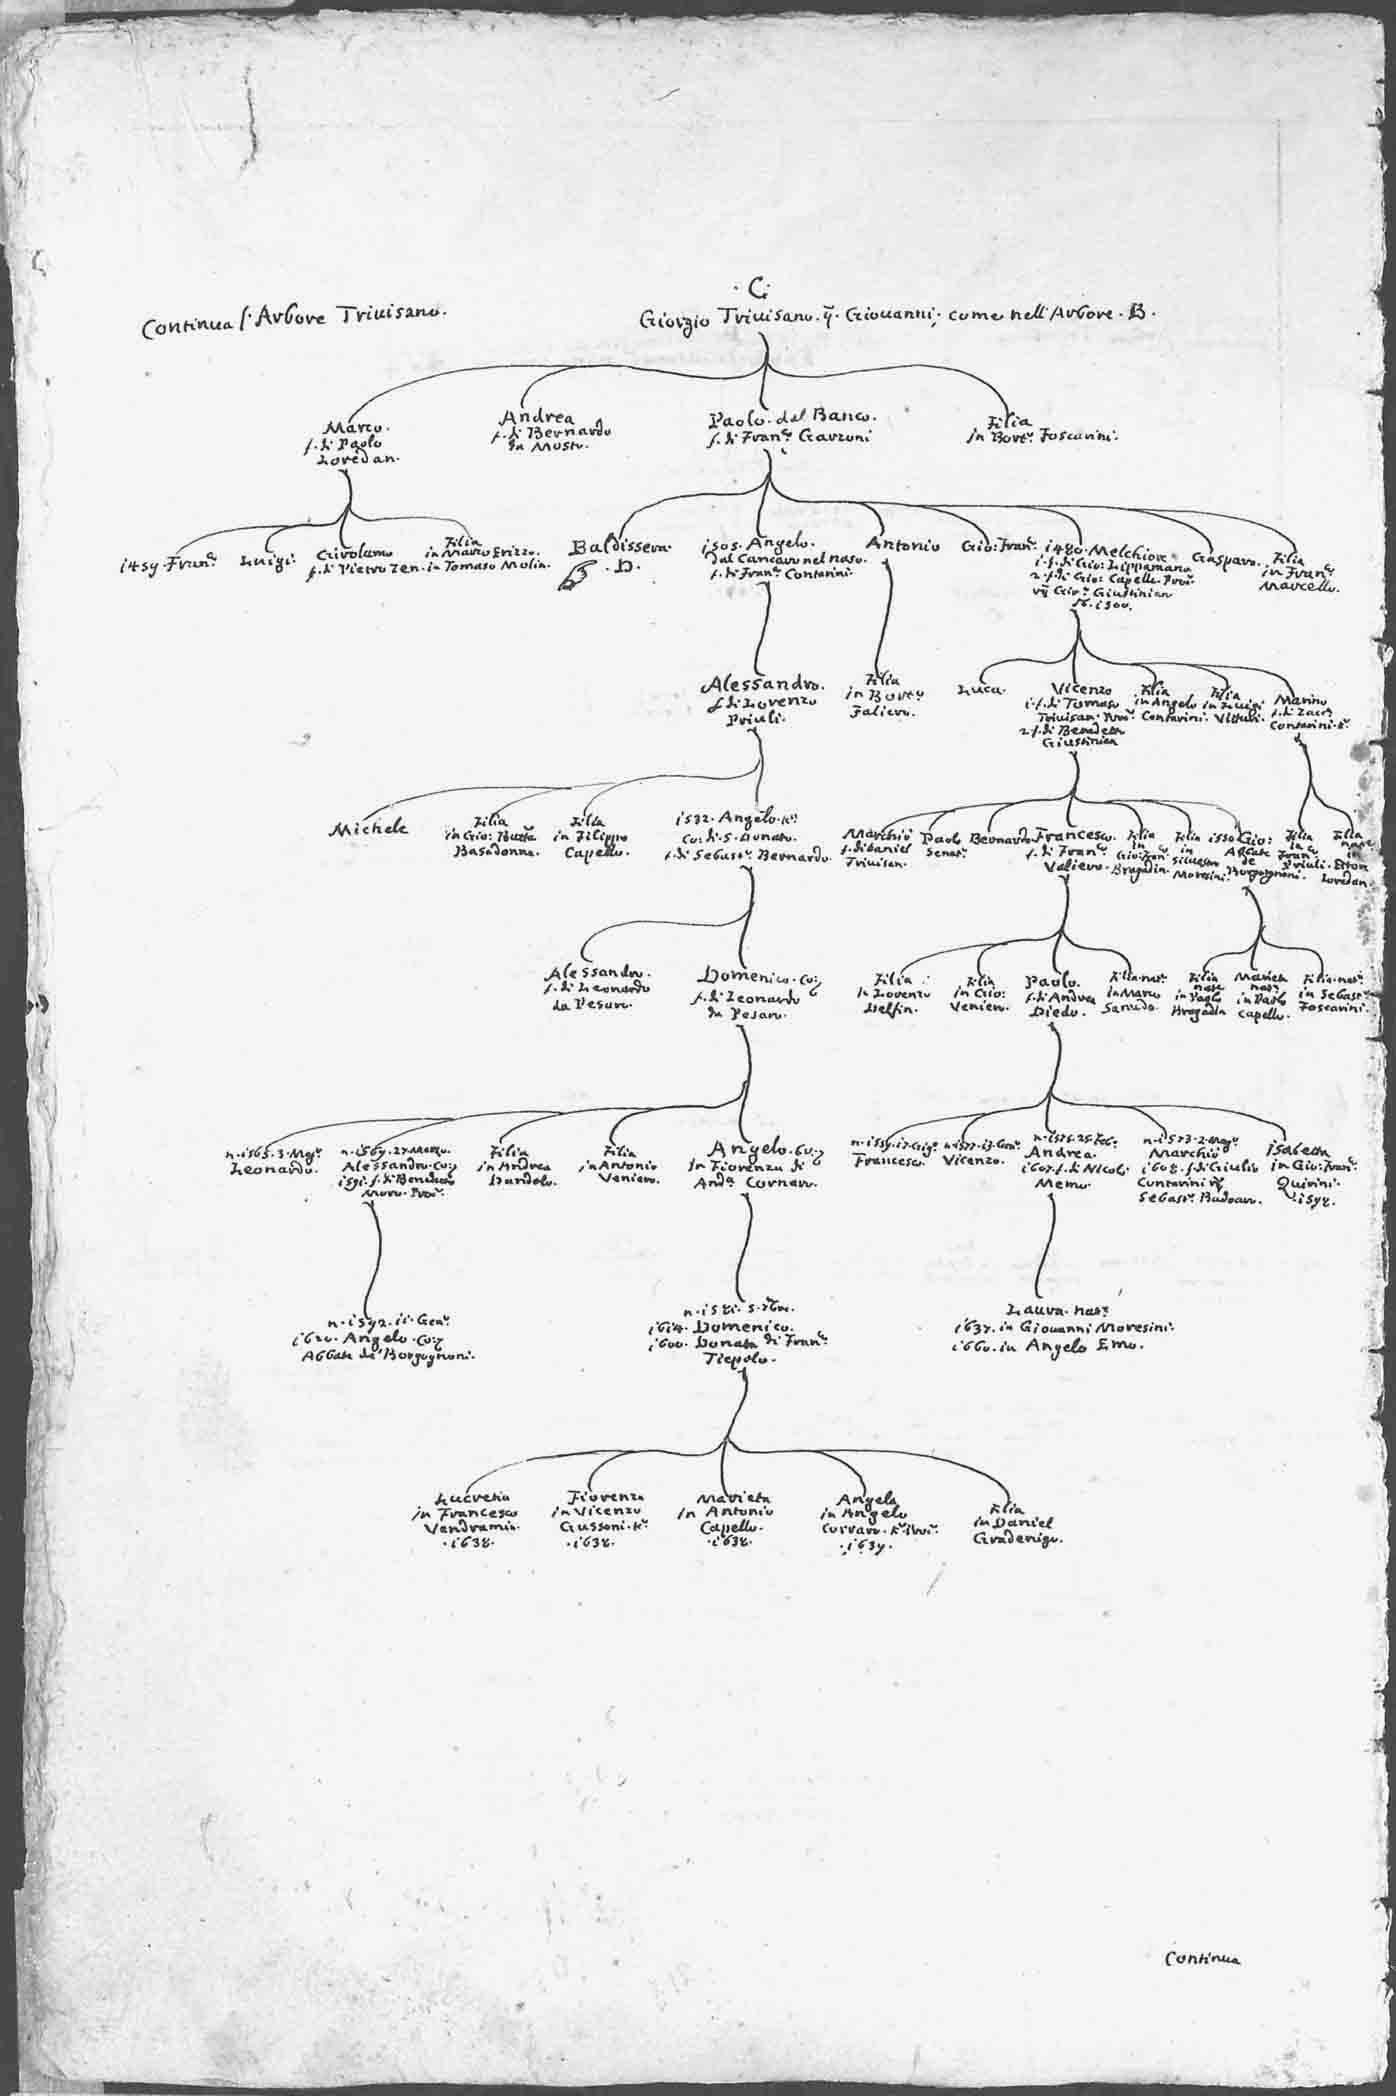 · C ·
Continua l'Arbore Trivisano.
Giorgio Trivisano. q̃. Giovanni; come nell'Arbore. B.
Marco.
f. di Paolo
Loredan.
Andrea
f. di Bernardo
da Mosto.
Paolo dal Banco.
f. di Fran.co Garzoni
Filia
in Bort.o Foscarini.
1459. Fran.co
Luigi.
Girolamo
f. di Pietro Zen.
Filia
in Marco Erizzo.
in Tomaso Molin.
Baldissera
. D.
1505. Angelo.
dal Cancaro nel naso.
f. di Fran.co Contarini.
Antonio
Gio: Fran.co
1480. Melchiore
1. f. di Gio: Lippamano
2. f. di Gio: Capello Pro.r
Gir.o Giustinian
1500.
Gasparo.
Filia
in Fran.co
Marcello.
Alessandro.
f. di Lorenzo
Priuli.
Filia
in Bort.o
Faliero.
Luca.
Vicenzo
1. f. di Tomaso
Trivisan. Pro.r
2. f. di Benedetto
Giustinian
Filia
in Angelo
Contarini.
Filia
in Luigi
Vitturi.
Marino
f. di Zacc.a
Contarini. K.r
Michele
Filia
in Gio: Batta
Basadonna.
Filia
in Filippo
Capello.
1532. Angelo. K.r
Co: di. S. Donato.
f. di Sebast.o Bernardo.
Marchiò
f. di Daniel
Trivisan.
Paolo
Senat.r
Bernardo
Francesco.
f. di Fran.co
Valiero.
Filia
in
Gio: Fran.co
Bragadin.
Filia
in
Silvestro
Moresini.
1530. Gio:
Abbate
de
Borgognoni.
Filia
in
Fran.co
Priuli.
Filia
nat.e
in
Ettor
Loredan.
Alessandro.
f. di Leonardo
da Pesaro.
Domenico. Co:
f. di Leonardo
da Pesaro.
Filia
in Lorenzo
Delfin.
Filia
in Gio:
Veniero.
Paolo.
f. di Andrea
Diedo.
Filia. nat.e
in Marco
Sanudo.
Filia
nat.e
in Paolo
Bragadin
Marieta
nat.e
in Paolo
Capello.
Filia. nat.e
in Sebast.o
Foscarini.
n. 1565. 3. Mag.o
Leonardo.
n. 1567. 27. Marzo.
Alessandro. Co:
1591. f. di Benedetto
Moro. Pro.r
Filia
in Andrea
Dandolo.
Filia
in Antonio
Veniero.
Angelo. Co:
in Fiorenza di
And.a Cornaro.
n. 1559. 17. Giug.o
Francesco.
n. 1577. 13. Gen.o
Vicenzo.
n. 1576. 25. Feb.o
Andrea.
1607. f. di Nicolò
Memo.
n. 1573. 2. Mag.o
Marchiò
1608. f. di Giulio
Contarini
Sebast.o Badoaro.
Isabetta
in Gio: Fran.co
Quirini.
n. 1592. 11. Gen.o
1620. Angelo. Co:
Abbate de' Borgognoni.
n. 1581. 5.
1614. Domenico.
1600. Donata di Fran.co
Tiepolo.
Laura. nat.e
1637. in Giovanni Moresini.
1660. in Angelo Emo.
Lucretia
in Francesco
Vendramin.
. 1638.
Fiorenza
in Vicenzo
Gussoni. K.r
. 1638.
Marieta
in Antonio
Capello.
. 1638.
Angela
in Angelo
Corraro. K.r Pro.r
. 1639.
Filia
in Daniel
Gradenigo.
Continua